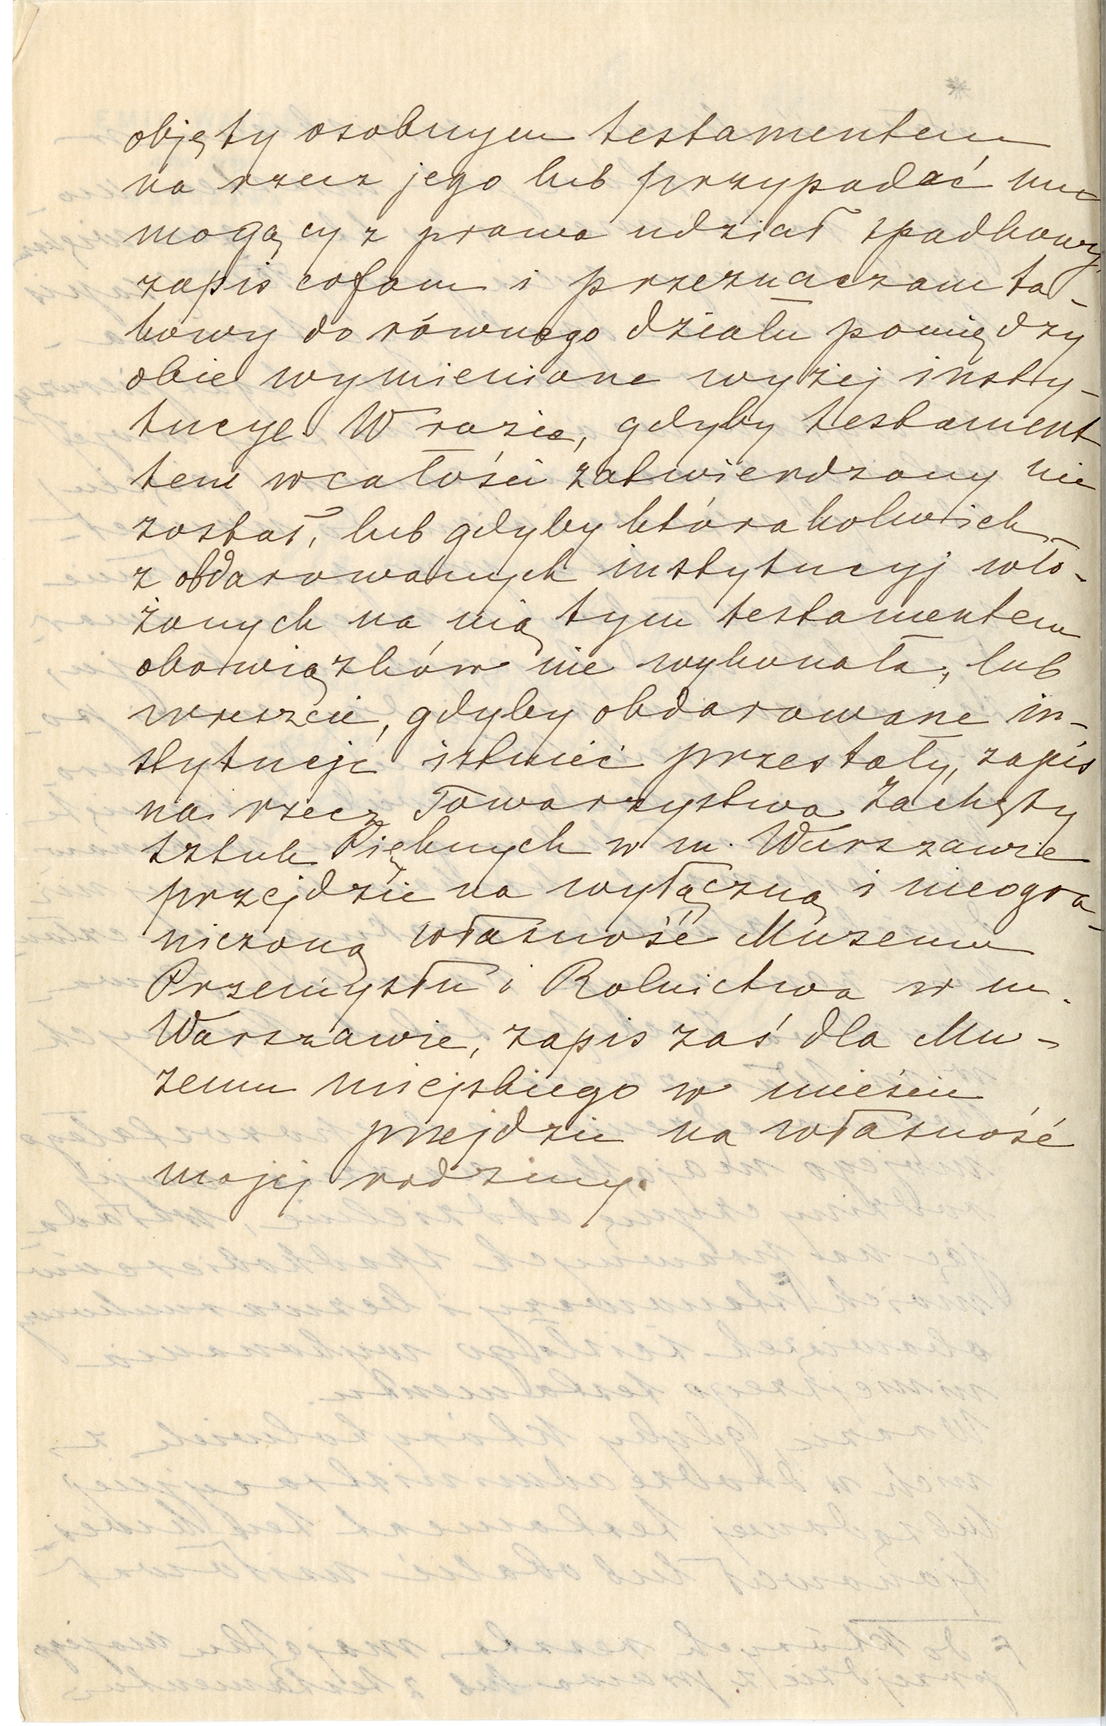 objęty osobnym testamentem
na rzecz jego lub przypadać mu
mogący z prawa udział spadkowy,
zapis cofam i przeznaczam ta-
kowy do równego działu pomiędzy
obie wymienione wyżej insty-
tucye. W razie, gdyby testament
ten w całości zatwierdzony nie
został, lub gdyby którakolwiek
z obdarowanych instytucyj wło-
żonych na nią tym testamentem
obowiązków nie wykonała, lub
wreszcie, gdyby obdarowane in-
stytucje istnieć przestały, zapis
na rzecz Towarzystwa Zachęty
sztuk Pięknych w m. Warszawie
przejdzie na wyłączną i nieogra-
niczoną własność Muzeum
Przemysłu i Rolnictwa w m.
Warszawie, zapis zaś dla Mu-
zeum miejskiego w mieście
przejdzie na własność
mojej rodziny.